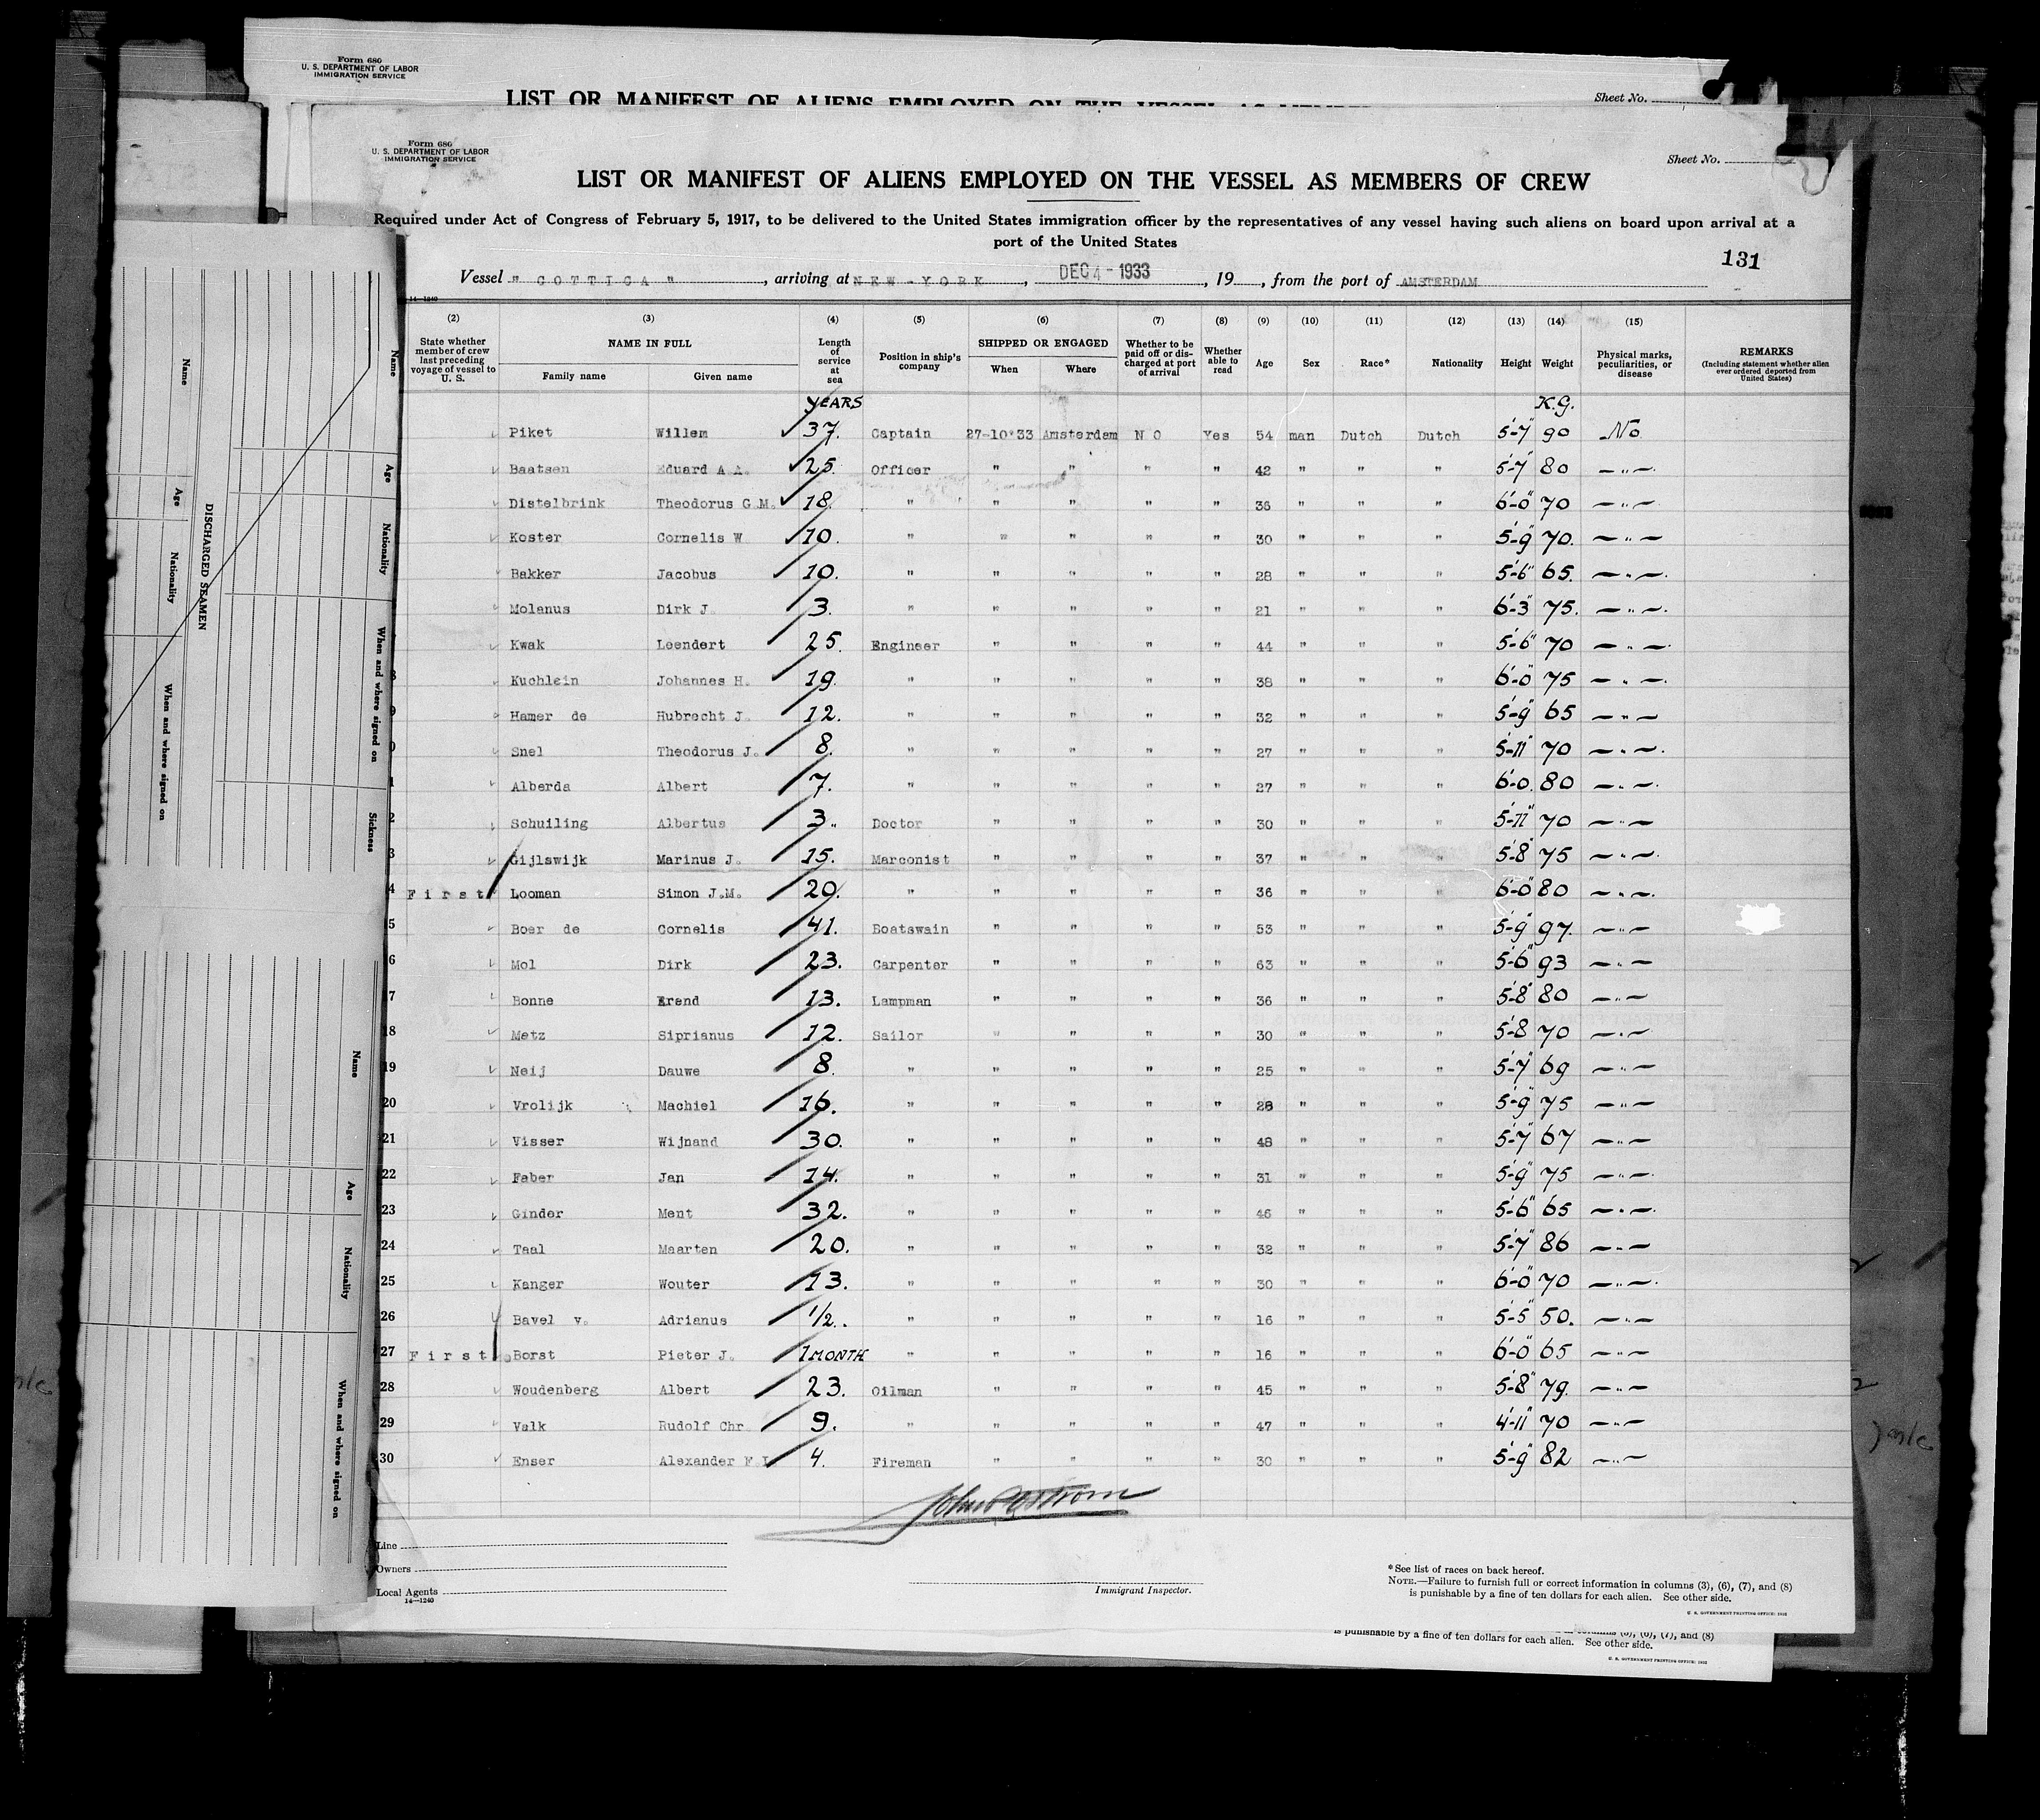 Form 680
U. S. DEPARTMENT OF LABOR
IMMIGRATION SERVICE
Sheet No.
LIST OR MANIFEST OF ALIENS EMPLOYED ON THE VESSEL AS
Form 680
U. S. DEPARTMENT OF LABOR
IMMIGRATION SERVICE
Sheet No.
LIST OR MANIFEST OF ALIENS EMPLOYED ON THE VESSEL AS MEMBERS OF CREW
Required under Act of Congress of February 5, 1917, to be delivered to the United States immigration officer by the representatives of any vessel having such aliens on board upon arrival at a
port of the United States
131
Vessel " COTTICA ", arriving at NEW-YORK, DEC 4 - 1933, 19, from the port of AMSTERDAM
14—1240
(2) (3) (4) (5) (6) (7) (8) (9) (10) (11) (12) (13) (14) (15)
State whether member of crew last preceding voyage of vessel to U. S. NAME IN FULL Family name Given name Length of service at sea Position in ship's company SHIPPED OR ENGAGED When Where Whether to be paid off or discharged at port of arrival Whether able to read Age Sex Race* Nationality Height Weight Physical marks, peculiarities, or disease REMARKS (Including statement whether alien ever ordered deported from United States)
YEARS K.G.
Piket Willem 37. Captain 27-10-33 Amsterdam NO Yes 54 man Dutch Dutch 5'-7" 90 No
Baatsen Eduard A.A. 25. Officer " " " " 42 " " " 5'-7" 80 —"—
Distelbrink Theodorus G.M. 18. " " " " " 36 " " " 6'-0" 70 —"—
Koster Cornelis W 10. " " " " " 30 " " " 5'-9" 70. —"—
Bakker Jacobus 10. " " " " " 28 " " " 5'-6" 65. —"—
Molenus Dirk J. 3. " " " " " 21 " " " 6'-3" 75. —"—
Kwak Leendert 25. Engineer " " " " 44 " " " 5'-6" 70 —"—
8 Kuchlein Johannes H. 19. " " " " " 38 " " " 6'-0" 75 —"—
9 Hamer de Hubrecht J. 12. " " " " " 32 " " " 5'-9" 65 —"—
0 Snel Theodorus J. 8. " " " " " 27 " " " 5'-11" 70 —"—
1 Alberda Albert 7. " " " " " 27 " " " 6'-0. 80 —"—
2 Schuiling Albertus 3. Doctor " " " " 30 " " " 5'-11" 70 —"—
3 Gijlswijk Marinus J. 15. Marconist " " " " 37 " " " 5'-8" 75 —"—
4 First Looman Simon J.M. 20. " " " " " 36 " " " 6'-0" 80 —"—
5 Boer de Cornelis 41. Boatswain " " " " 53 " " " 5'-9" 97. —"—
6 Mol Dirk 23. Carpenter " " " " 63 " " " 5'-6" 93 —"—
7 Bonne Erend 13. Lampman " " " " 36 " " " 5'-8" 80 —"—
18 Metz Siprianus 12. Sailor " " " " 30 " " " 5'-8 70 —"—
19 Neij Dauwe 8. " " " " " 25 " " " 5'-7" 69 —"—
20 Vrolijk Machiel 16. " " " " " 28 " " " 5'-9" 75 —"—
21 Visser Wijnand 30. " " " " " 48 " " " 5'-7" 67 —"—
22 Faber Jan 14. " " " " " 31 " " " 5'-9" 75 —"—
23 Ginder Ment 32. " " " " " 46 " " " 5'-6" 65 —"—
24 Taal Maarten 20. " " " " " 32 " " " 5'-7" 86 —"—
25 Kanger Wouter 13. " " " " " 30 " " " 6'-0" 70 —"—
26 Bavel v. Adrianus 1/2. " " " " " 16 " " " 5'-5" 50. —"—
27 First Borst Pieter J. 1 MONTH " " " " " 16 " " " 6'-0" 65 —"—
28 Woudenberg Albert 23. Oilman " " " " 45 " " " 5'-8" 79. —"—
29 Valk Rudolf Chr. 9. " " " " " 47 " " " 4'-11" 70 —"—
30 Enser Alexander F. 4. Fireman " " " " 30 " " " 5'-9" 82 —"—
Line
Owners
Local Agents
14—1240
Immigrant Inspector.
*See list of races on back hereof.
NOTE.—Failure to furnish full or correct information in columns (3), (6), (7), and (8)
is punishable by a fine of ten dollars for each alien. See other side.
U. S. GOVERNMENT PRINTING OFFICE: 1932
is punishable by a fine of ten dollars for each alien. See other side.
U. S. GOVERNMENT PRINTING OFFICE: 1932
DISCHARGED SEAMEN
Name Age Nationality When and where signed on
Name Age Nationality When and where signed on Sickness
Name Age Nationality When and where signed on